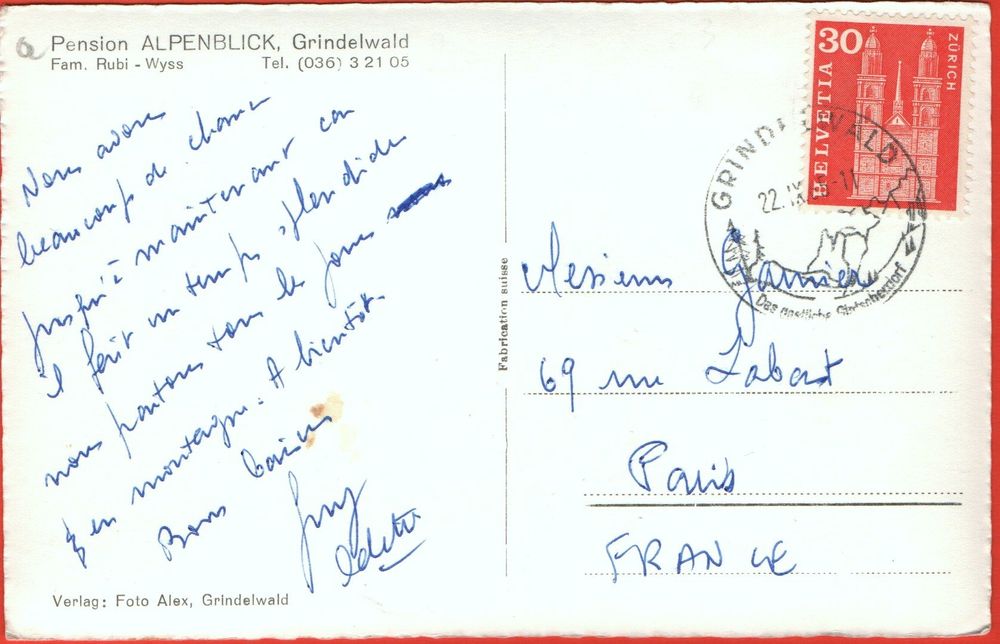 Pension ALPENBLICK, Grindelwald
Fam. Rubi - Wyss Tel. (036) 3 21 05
Nous avons
beaucoup de chance
jusqu'à maintenant car
il fait un temps splendide
nous partons tous les jours
en montagne. A bientôt.
Bons baisers
Odette
Verlag: Foto Alex, Grindelwald
Fabrication suisse
30
HELVETIA
ZÜRICH
GRINDELWALD
22.IX
Das gastliche Gletscherdorf
Messieurs Garnier
69 rue Labat
Paris
FRANCE